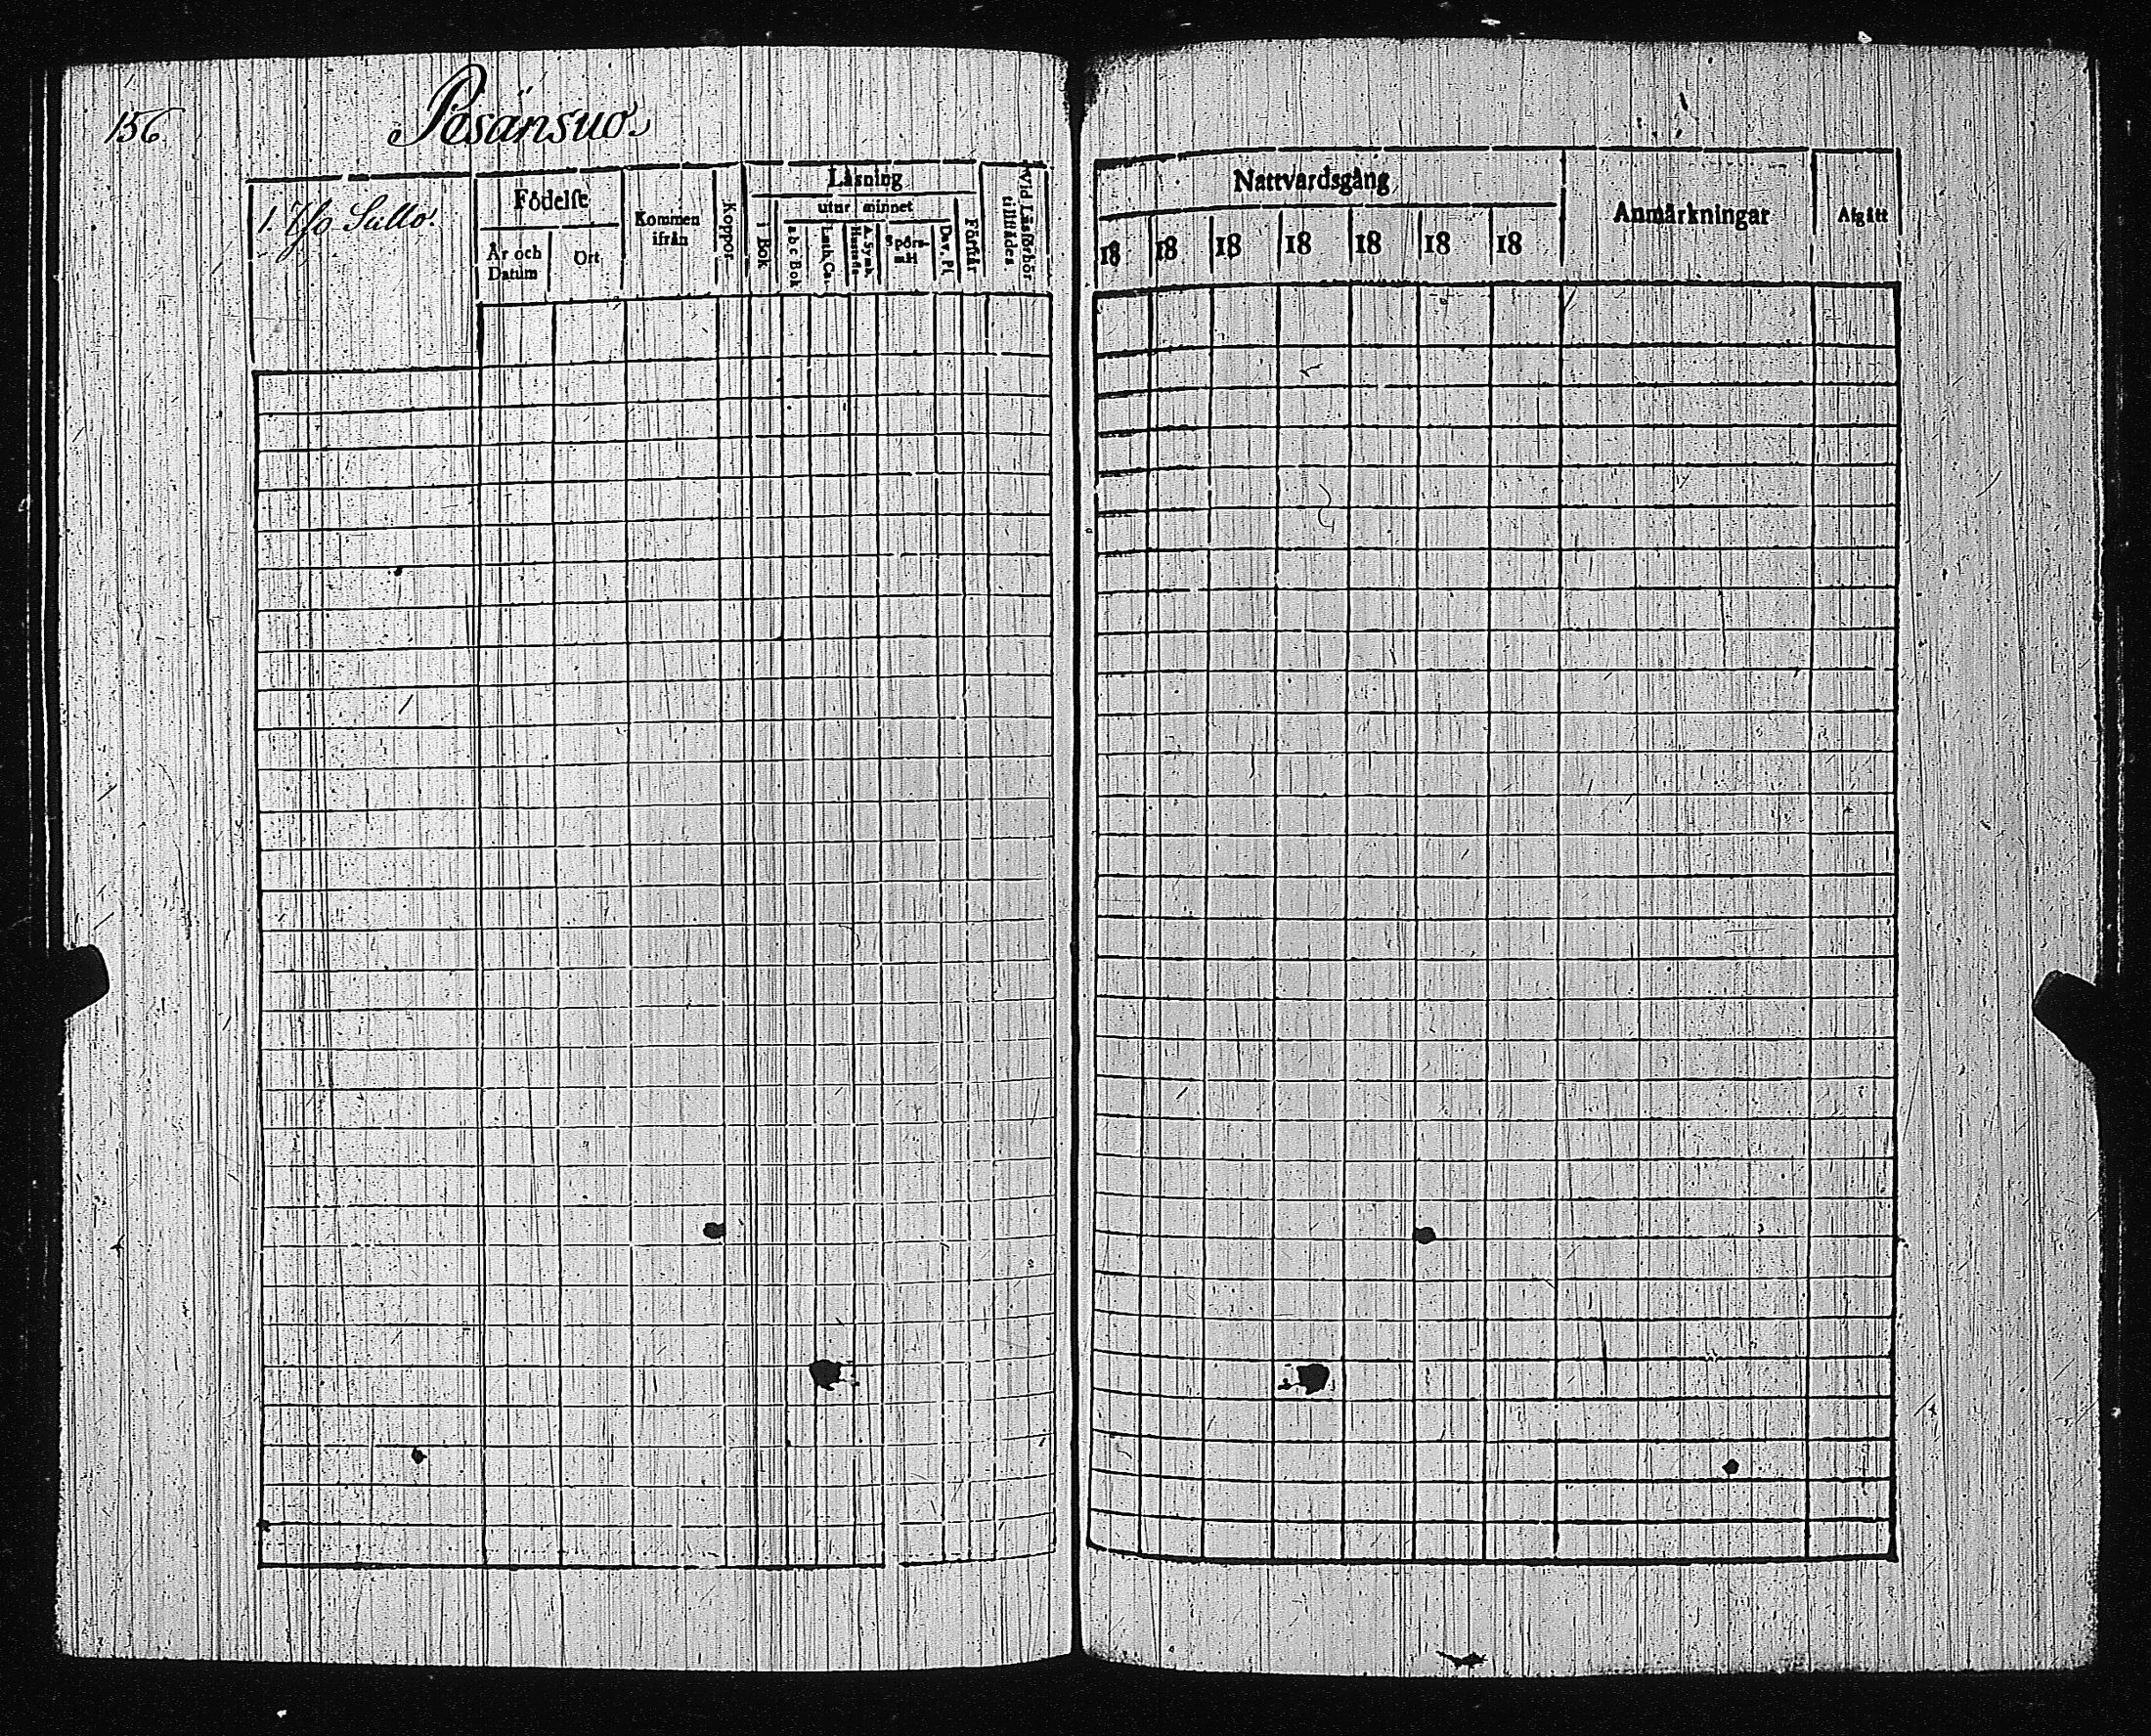 156.
Pesänsuo.
1. Iso Sallo.
Födelse
År och Datum
Ort
Kommen ifrån
Koppor
Läsning
i Bok
utur minnet
a b c Bok
Luth. Ca.
Spörs-mål
Dav. Ps.
Förstår
Vid Läsförhör tillstädes.
Nattvardsgång
18 18 18 18 18 18 18
Anmärkningar
Afgått